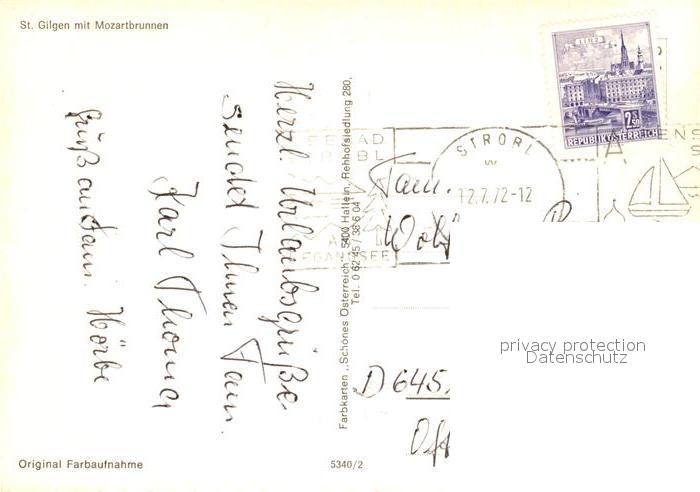 St. Gilgen mit Mozartbrunnen
Herzl. Urlaubsgrüße
sendet Ihnen Fam.
Karl Thoma
Gruß an Fam. Hörbe
Farbkarten „Schönes Österreich“, 5400 Hallein, Rehhofsiedlung 280,
Tel. 0 62 45 / 38 6 04
LINZ
2.50
REPUBLIK ÖSTERREICH
STROBL
12.7.72-12
SEEBAD
STROBL
AM
WOLFGANGSEE
Fam.
D 645
privacy protection
Datenschutz
Original Farbaufnahme
5340/2